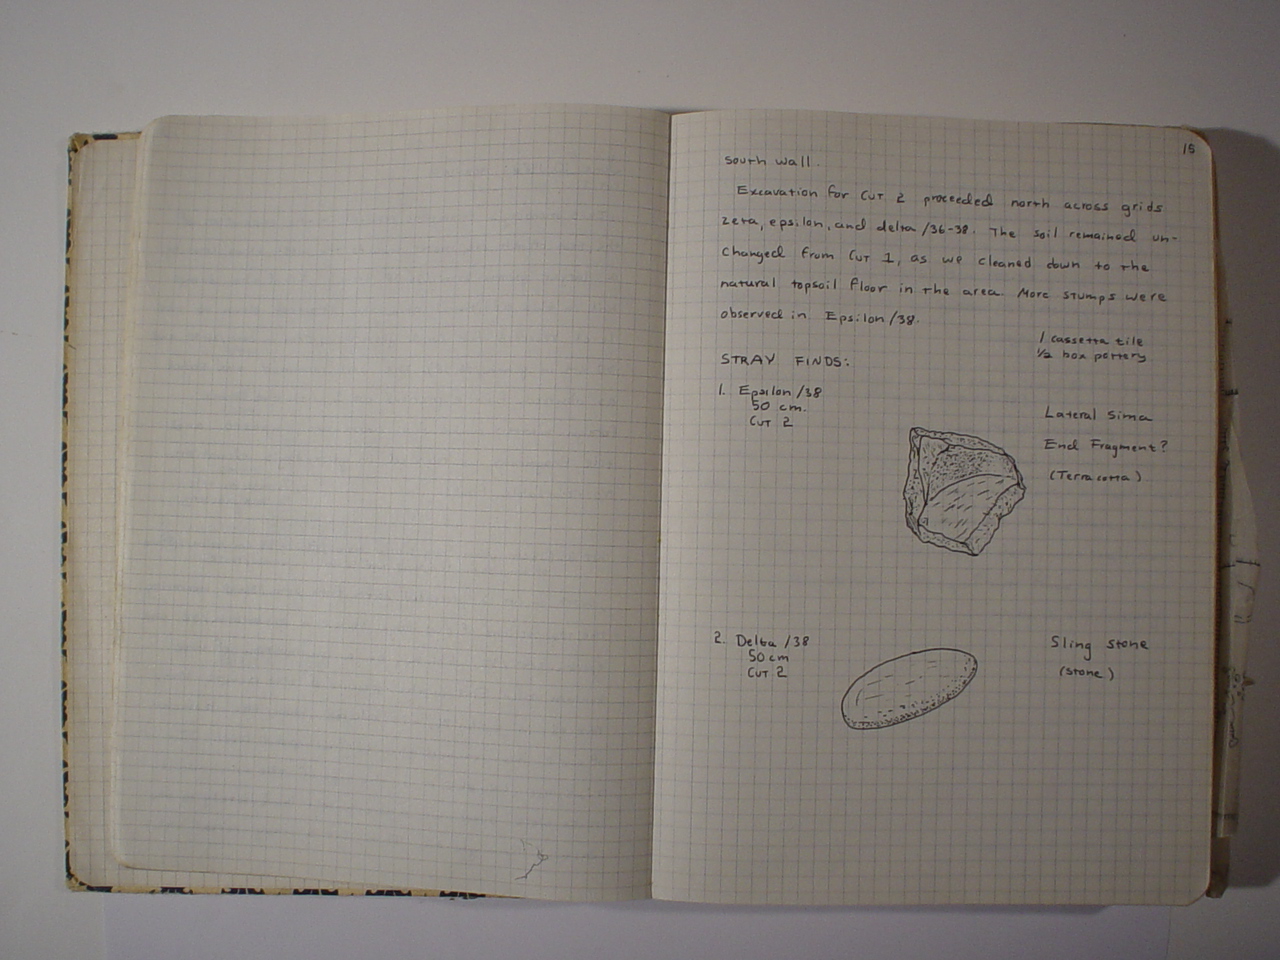 15
South wall.
Excavation for Cut 2 proceeded north across grids
zeta, epsilon, and delta /36-38. The soil remained un-
changed from Cut 1, as we cleaned down to the
natural topsoil floor in the area. More stumps were
observed in Epsilon /38.
1 cassetta tile
1/2 box pottery
STRAY FINDS:
1. Epsilon /38
50 cm.
Cut 2
Lateral Sima
End Fragment?
(Terracotta)
2. Delta /38
50 cm
Cut 2
Sling Stone
(Stone)